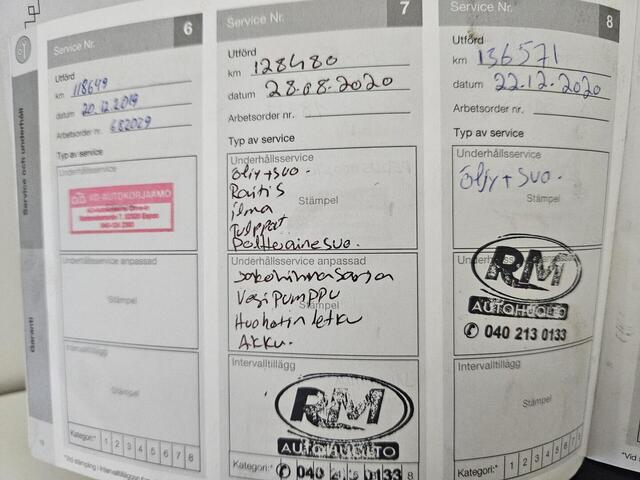 Service och underhåll
Garanti
Service Nr.
6
Utförd
km 118649
datum 20.12.2019
Arbetsorder nr. 682029
Typ av service
Underhållsservice
Stämpel
Underhållsservice anpassad
Stämpel
Intervalltillägg
Stämpel
Kategori:* 1 2 3 4 5 6 7 8
Service Nr.
7
Utförd
km 128480
datum 28.08.2020
Arbetsorder nr.
Typ av service
Underhållsservice
öljy+suo.
Raitis
Stämpel
ilma
Tulppat
Polttoainesuo.
Underhållsservice anpassad
Vesipumppu
Stämpel
Huohotin letku
Akku.
Intervalltillägg
RM
AUTOHUOLTO
Kategori:*
Service Nr.
8
Utförd
km 136571
datum 22.12.2020
Arbetsorder nr.
Typ av service
Underhållsservice
öljy+suo.
Stämpel
RM
AUTOHUOLTO
✆ 040 213 0133
Intervalltillägg
Stämpel
Kategori:* 1 2 3 4 5 6 7